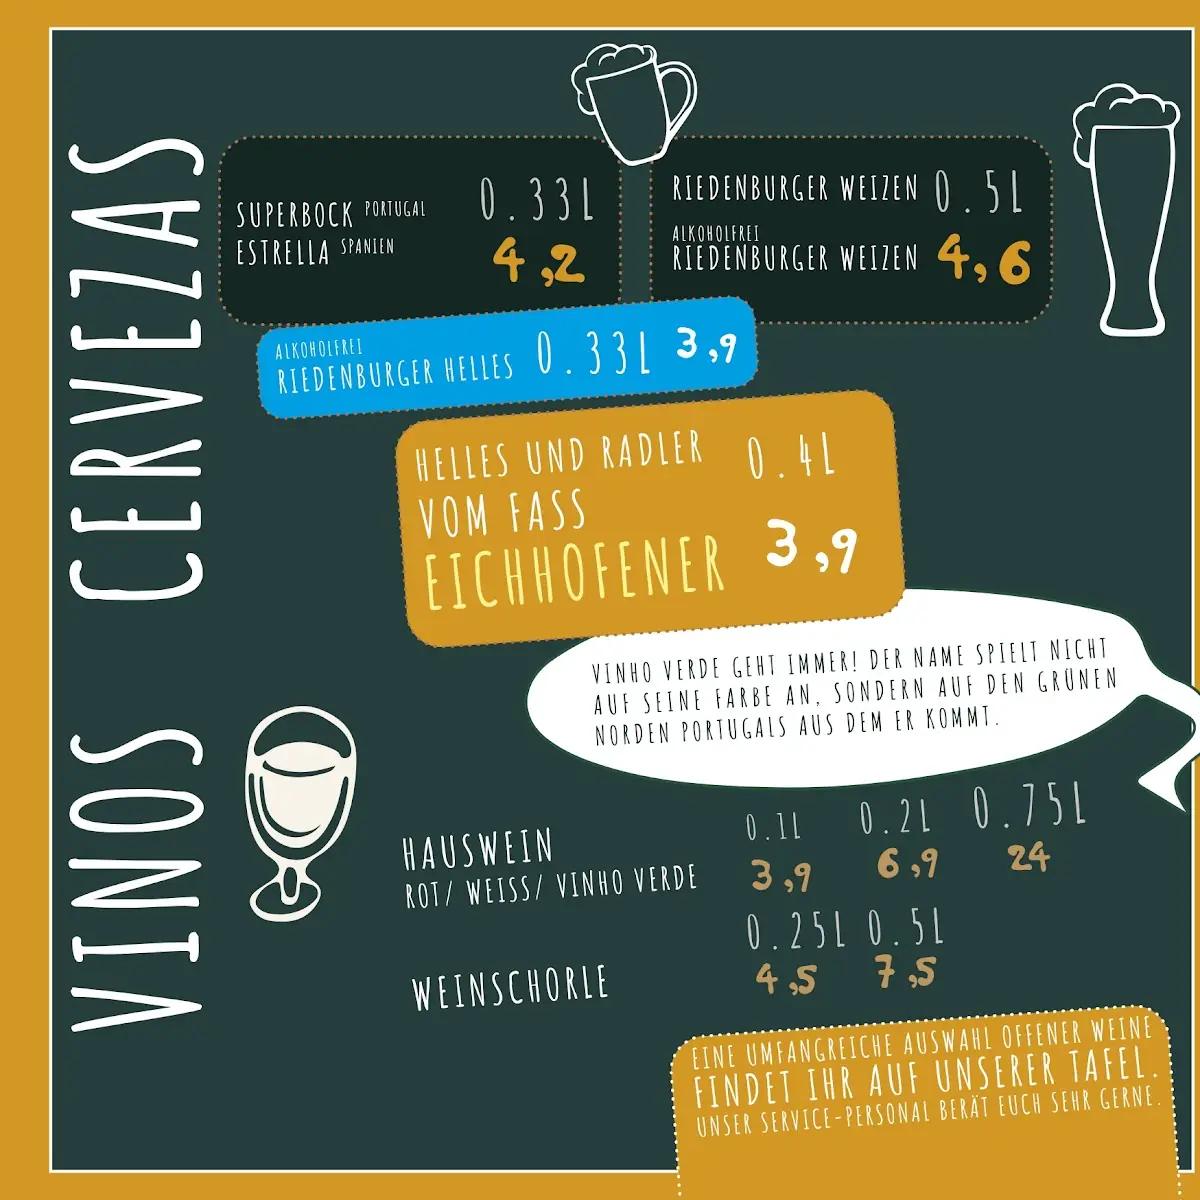 CERVEZAS
SUPERBOCK PORTUGAL
ESTRELLA SPANIEN
0.33L
4,2
RIEDENBURGER WEIZEN
ALKOHOLFREI
RIEDENBURGER WEIZEN
0.5L
4,6
ALKOHOLFREI
RIEDENBURGER HELLES 0.33L 3,9
HELLES UND RADLER
VOM FASS
EICHHOFENER
0.4L
3,9
VINHO VERDE GEHT IMMER! DER NAME SPIELT NICHT
AUF SEINE FARBE AN, SONDERN AUF DEN GRÜNEN
NORDEN PORTUGALS AUS DEM ER KOMMT.
VINOS
HAUSWEIN
ROT/ WEISS/ VINHO VERDE
0.1L 0.2L 0.75L
3,9 6,9 24
WEINSCHORLE
0.25L 0.5L
4,5 7,5
EINE UMFANGREICHE AUSWAHL OFFENER WEINE
FINDET IHR AUF UNSERER TAFEL.
UNSER SERVICE-PERSONAL BERÄT EUCH SEHR GERNE.